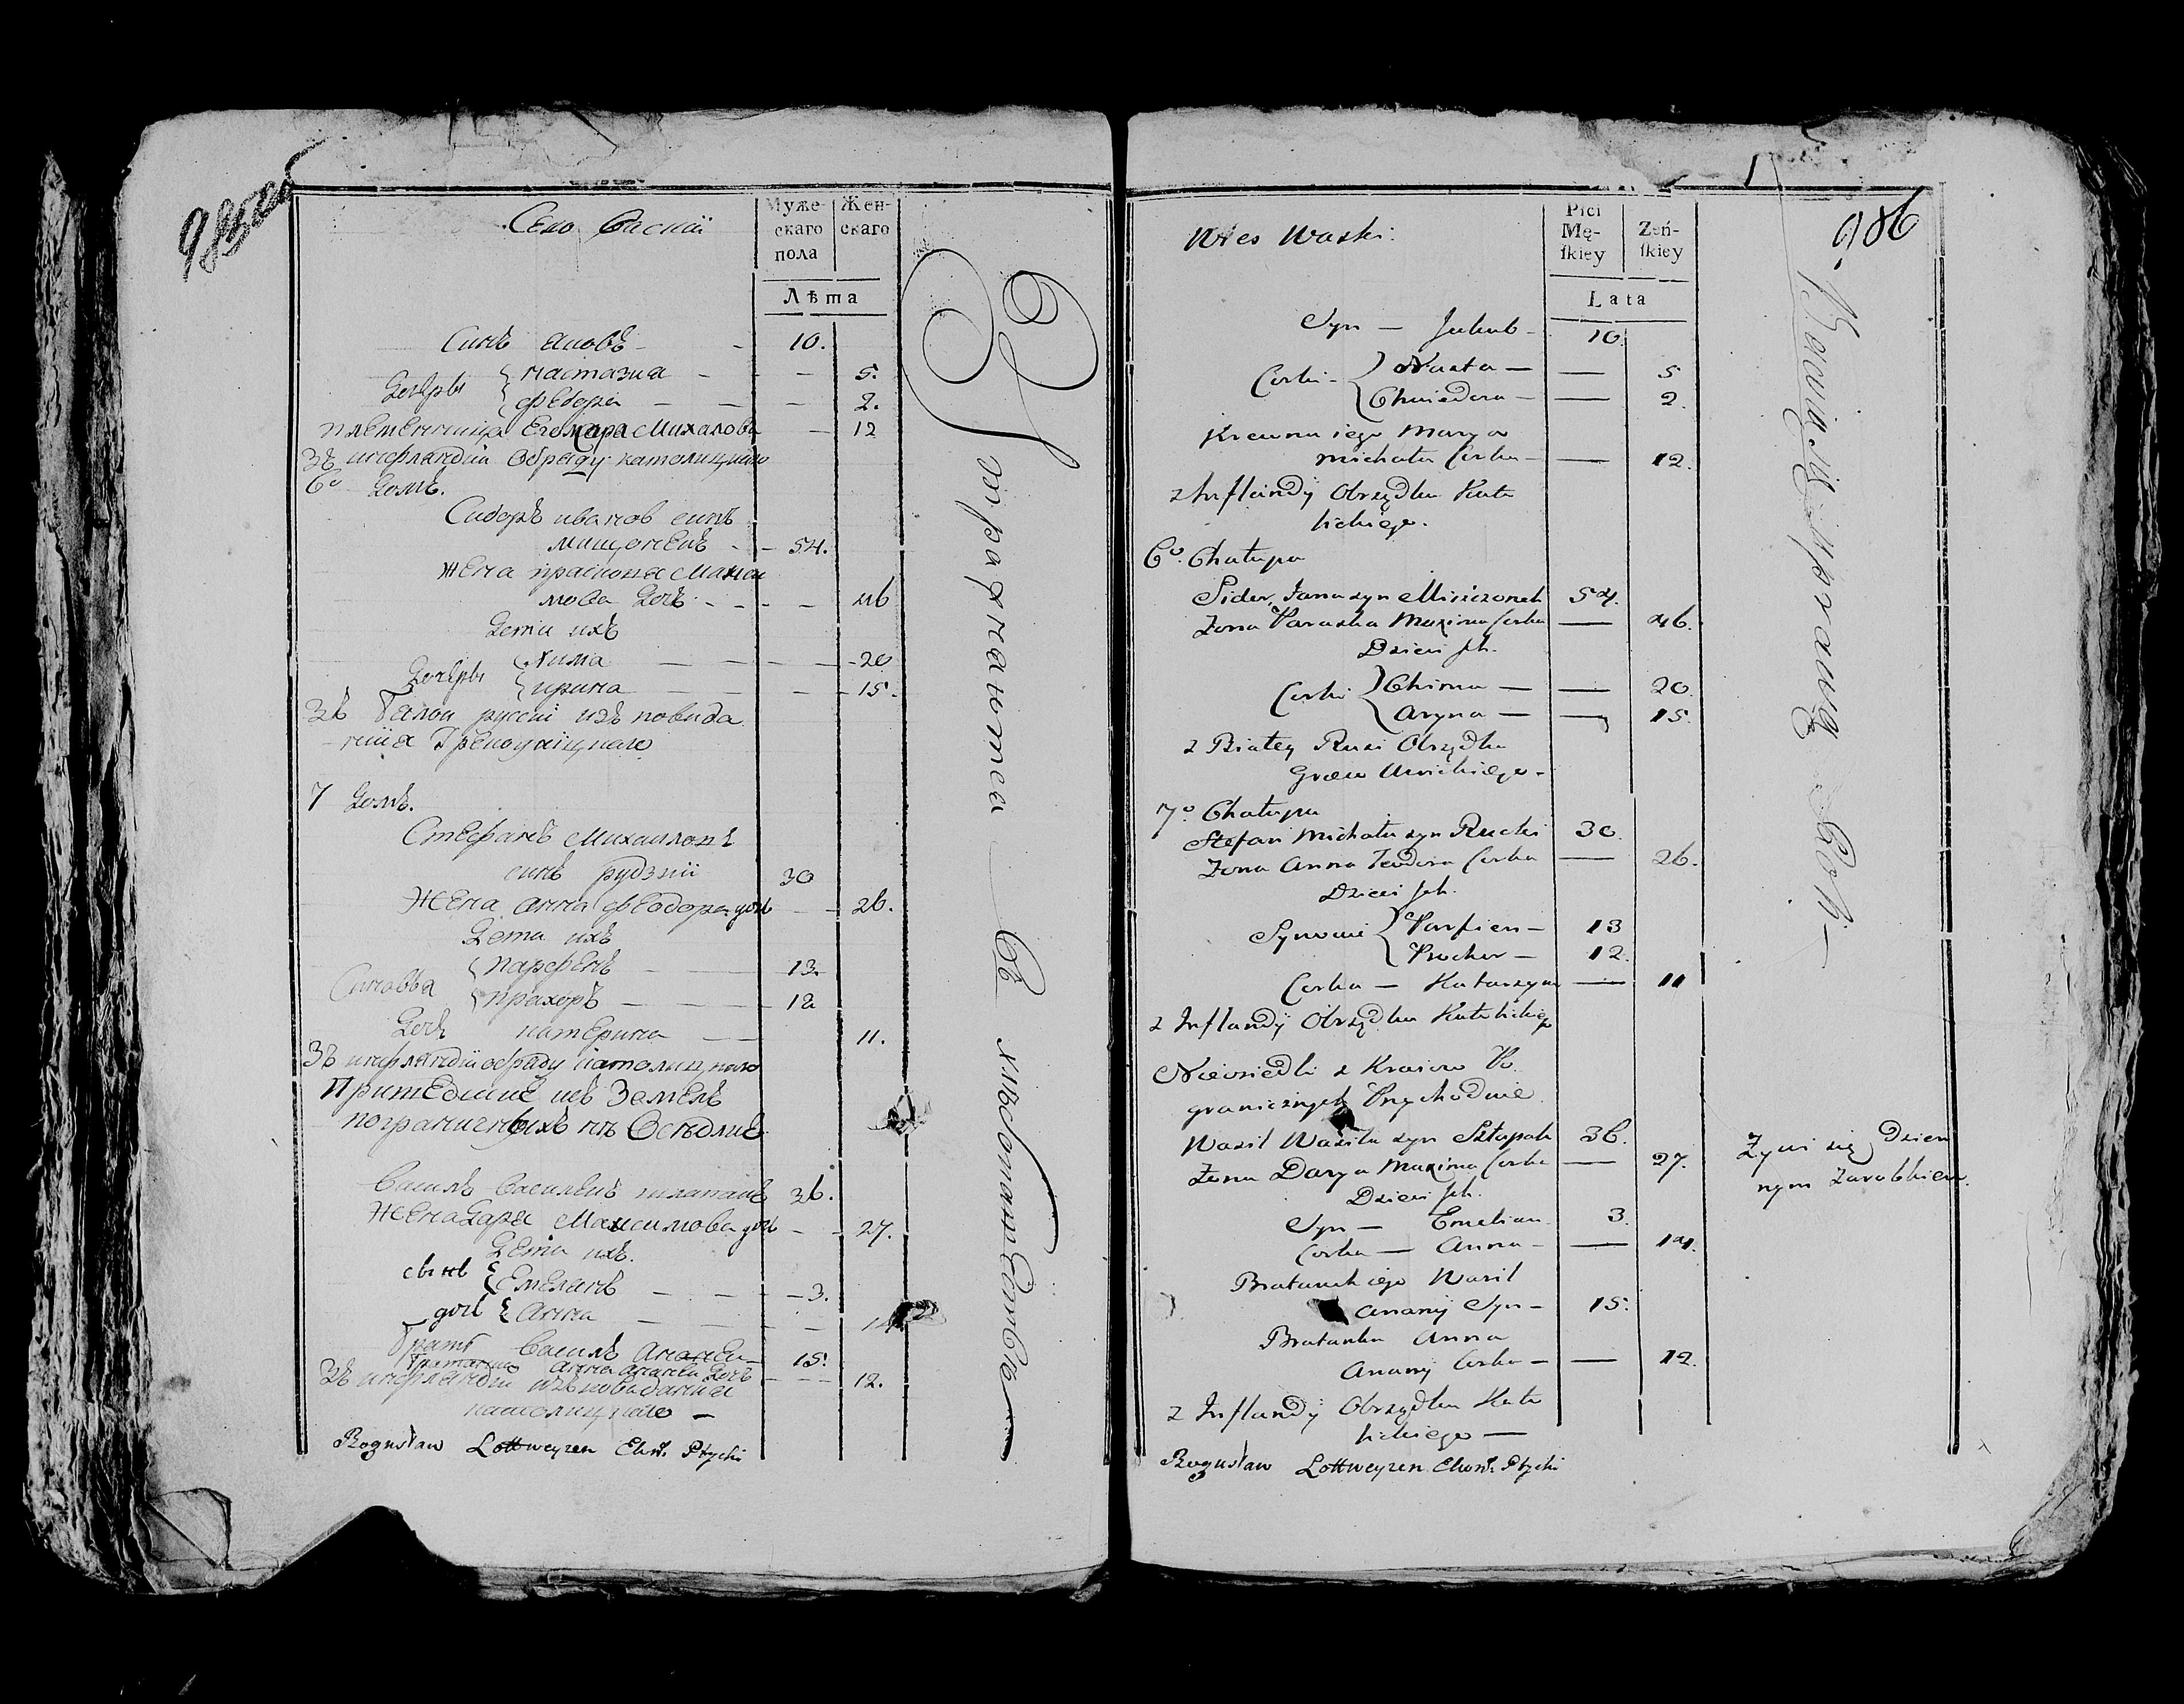 985
Село Васкии
Муже-
скаго
пола
Жен-
скаго
Лѣта
Синъ Яковъ - - 10.
Дочеры
настазиа - - - 5.
фѣдора - - - 2.
племенница Его мара Михалова - 12
Зъ инфляндіи Обряду католицкаго
6º Домъ.
Сидоръ иванов синъ
мищонекъ - - 54.
Жена праскоця Макси
мова Дочъ - - - - 46
Дети ихъ
Дочеры
хима - - - - 20
ирина - - - - 15.
Зъ Балои русси изъповида
ниа Грекоуніцкаго
7 Домъ.
Стефанъ Михаиловъ
синъ рудзкіи 30
Жена анна феодора дочъ - - 26.
Дети ихъ
Синовья
парфенъ - - 13.
прахоръ - - - 12
Дочъ катерина - - 11.
Зъ инфляндіи обряду католицкаго
Пришедшие изъ Земель
пограничныхъ не Оседлие
Василь Василевъ шлапакъ 36.
Жена Даря Максимова дочъ - - 27.
Дети ихъ.
сынъ Емелянъ - - - 3.
дочъ Анна - - - - 14
братъ Василь Ананеи - 15.
братанка анна ананеи Дочъ - - - 12.
Зъ инфляндіи изъповиданиа
католицкаго -
Bogusław Lottweyzen Ekon. Ptycki
986
Wies Waski.
Płci
Mę-
skiey
Żeń-
skiey
Lata
Syn - Jakub - 10.
Corki -
Nasta - - 5
Chwiedora - - 2.
Krewna iego Marya
Michała Corka - - 12.
z Inflandÿ Obrządku Kato
lickiego.
6º. Chałupa
Sider Jana syn Miszczonek 54.
Żona Paraska Maxima Corka - 46.
Dzieci Jch.
Corki
Chima - - 20.
Aryna - - 15.
z Białey Rusi Obrządku
Greco Unickiego -
7º. Chałupa
Stefan Michała syn Rucki 30.
Żona Anna Teodora Corka - 26.
Dzieci Jch.
Synowie
Parfien - 13
Prochor - 12.
Corka - Katarzyna - 11
z Inflandÿ Obrządku Katolickiego
Nieosiedli z Kraiow Po
granicznych Przychodnie.
Wasil Wasila syn Szłapak 36. Żywi się Dzien
Żona Darya Maxima Corka - 27. nym Zarobkiem.
Dzieci Jch.
Syn - Emelian 3.
Corka - Anna - - 14.
Bratanek iego Wasil
Ananÿ Syn - 15.
Bratanka Anna
Ananÿ Corka - - 12.
z Inflandÿ Obrządku Kato
lickiego -
Bogusław Lottweyzen. Ekon. Ptycki